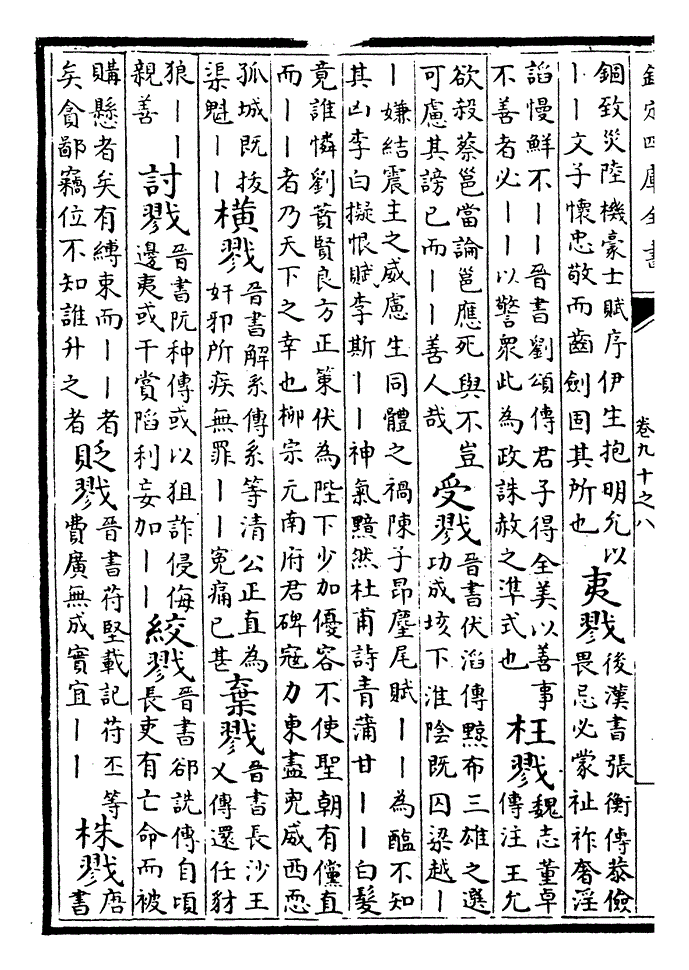 欽定四庫全書
卷九十之八
錮致災陸機豪士賦序伊生抱明允以
||文子懷忠敬而齒劍固其所也
夷戮
後漢書張衡傳恭儉
畏忌必蒙祉祚奢淫
諂慢鮮不||晉書劉頌傳君子得全美以善事
不善者必||以警衆此為政誅赦之準式也
枉戮
魏志董卓
傳注王允
欲殺蔡邕當論邕應死與不豈
可慮其謗已而||善人哉
受戮
晉書伏滔傳黥布三雄之選
功成垓下淮陰既囚梁越|
|嫌結震主之威慮生同體之禍陳子昂麈尾賦||為醢不知
其凶李白擬恨賦李斯||神氣黯然杜甫詩青蒲甘||白髮
竟誰憐劉蕡賢良方正策伏為陛下少加優容不使聖朝有儻直
而||者乃天下之幸也柳宗元南府君碑寇力東盡兇威西恧
孤城既拔
渠魁||
橫戮
晉書解系傳系等清公正直為
奸邪所疾無罪||寃痛已甚
棄戮
晉書長沙王
乂傳還任豺
狼||
親善
討戮
晉書阮种傳或以狙詐侵侮
邊夷或干賞陷利妄加||
絞戮
晉書郤詵傳自頃
長吏有亡命而被
購懸者矣有縛束而||者
矣貪鄙竊位不知誰升之者
貶戮
晉書苻堅載記苻丕等
費廣無成實宜||
株戮
唐
書